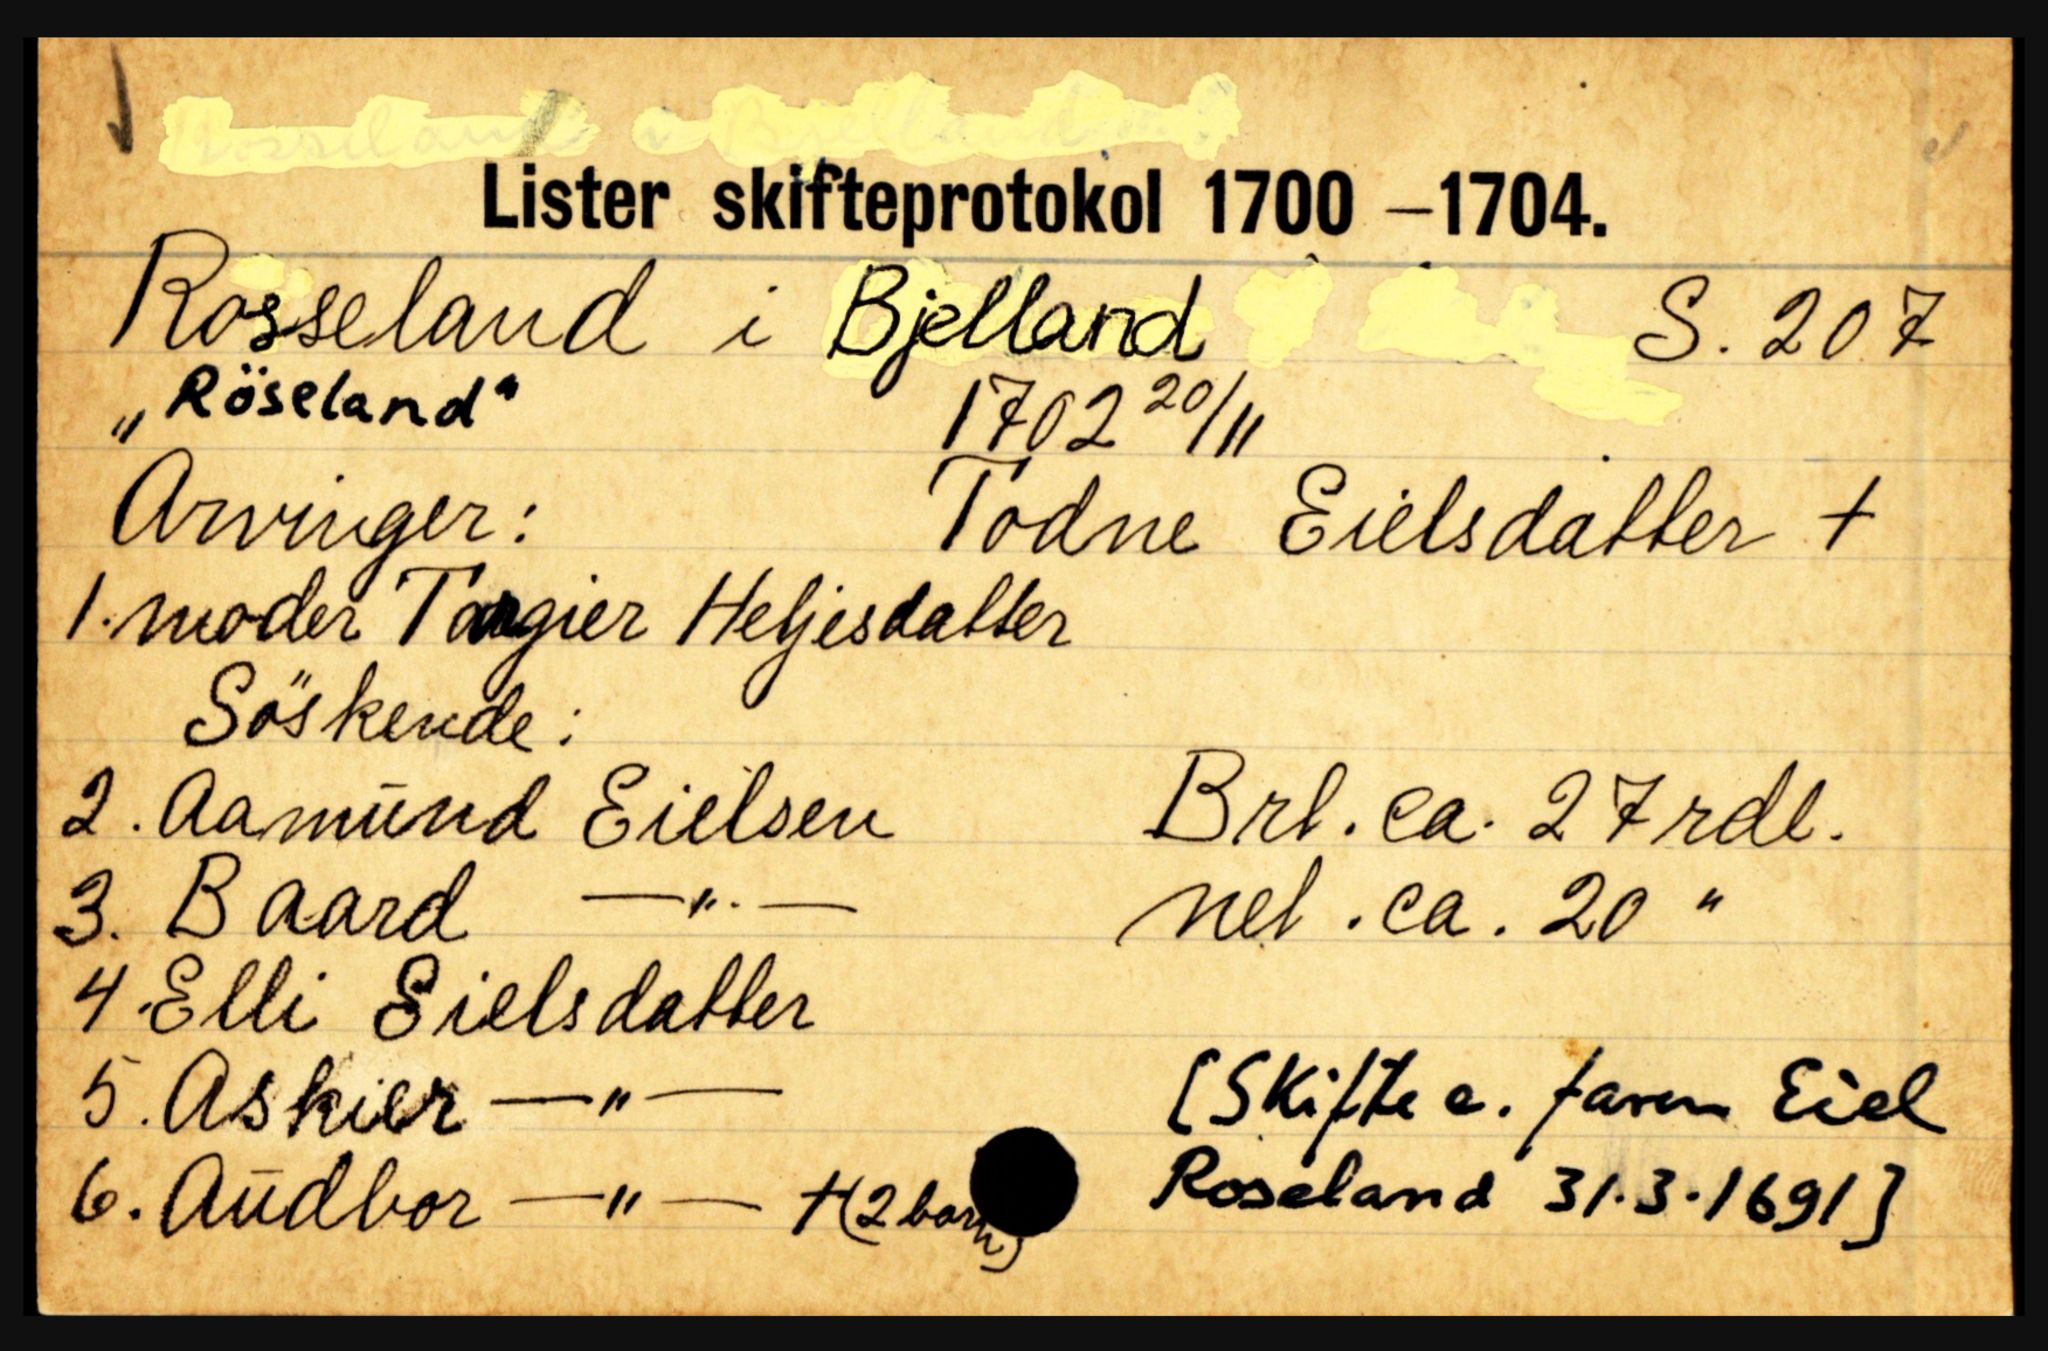 Lister skifteprotokol 1700 – 1704.
Rosseland i Bjelland S. 207
„Röseland“ 1702 20/11
Arvinger: Todne Eielsdatter +
1. moder Targier Heljesdatter
Söskende:
2. Aamūnd Eielsen Brl. ca. 27 rdl.
3. Baard —„— nel. ca. 20 "
4. Elli Eielsdatter
5. Askier —„— [Skifte e. faren Eiel
6. Aūdbor —„— +(2 barn) Roseland 31.3.1691]